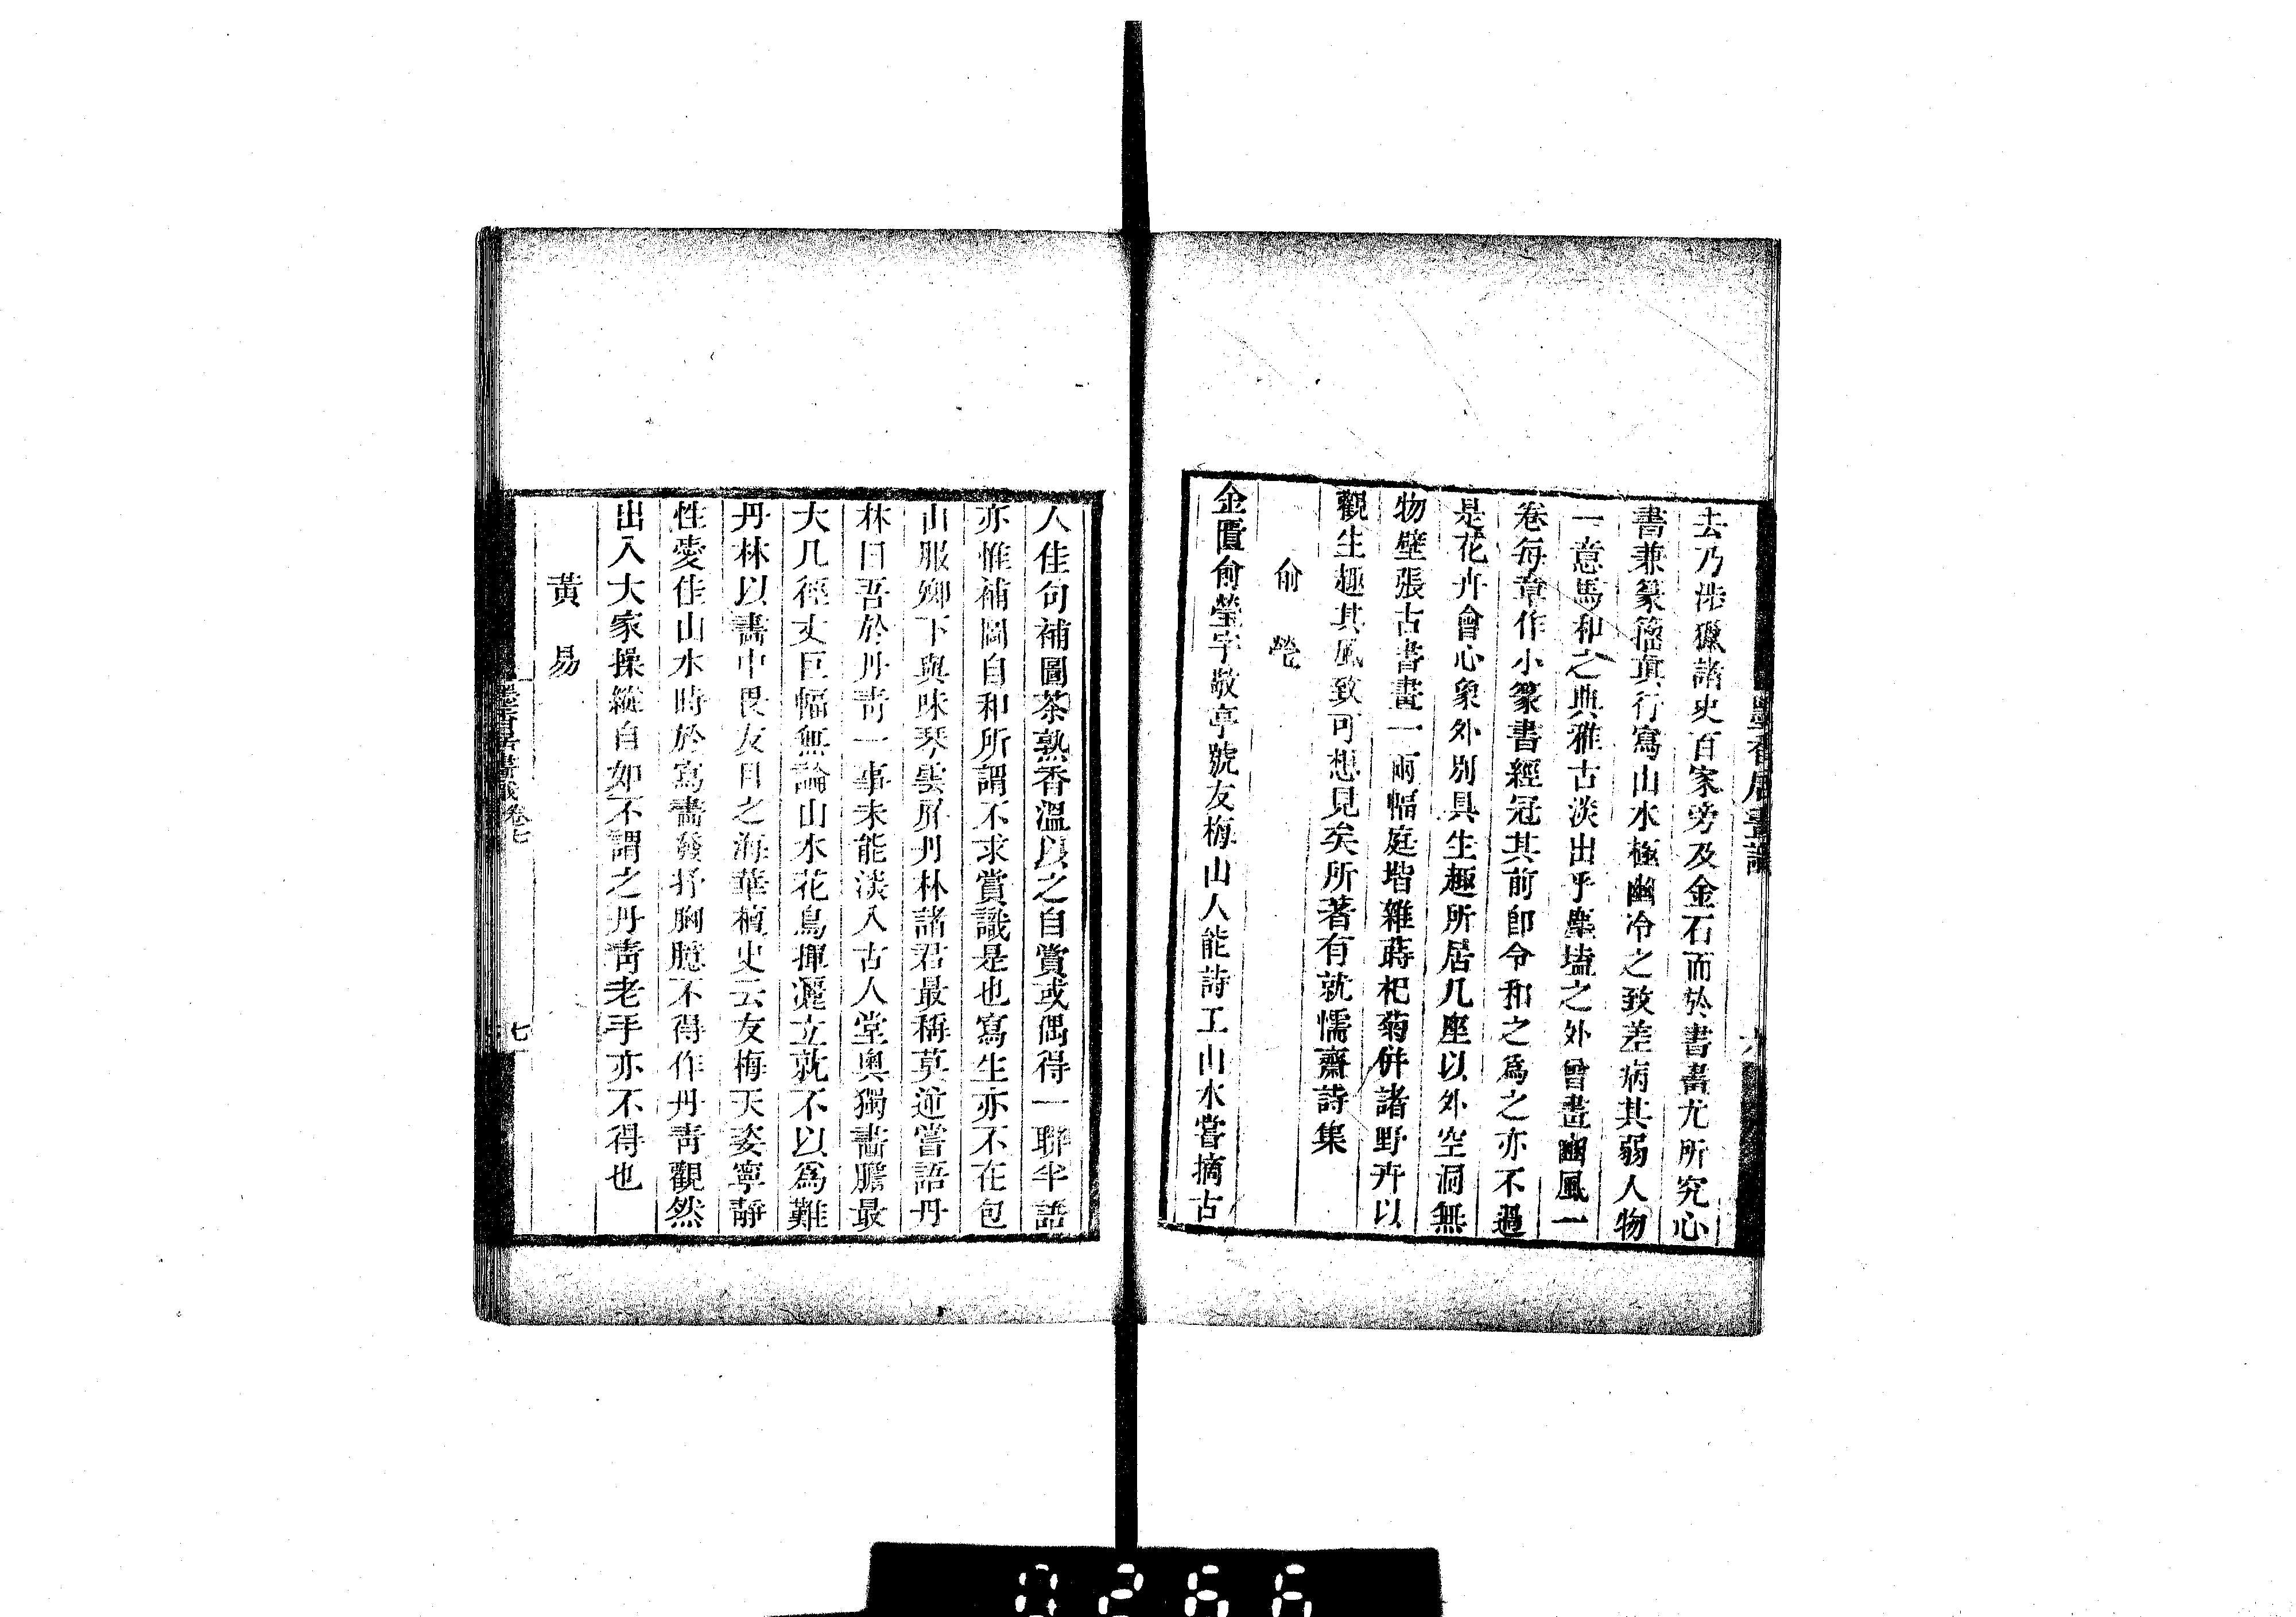 墨香居畫識
六
去乃涉獵諸史百家旁及金石而於書畵尤所究心
書兼篆籀眞行寫山水極幽冷之致差病其弱人物
一意馬和之典雅古淡出乎塵壒之外曾畫豳風一
卷每章作小篆書經冠其前卽令和之爲之亦不過
是花卉會心象外別具生趣所居几座以外空洞無
物壁張古書畫一兩幅庭堦雜蒔杞菊併諸野卉以
觀生趣其風致可想見矣所著有就懦齋詩集
俞瑩
金匱俞瑩字敬亭號友梅山人能詩工山水嘗摘古
人佳句補圖茶熟香溫以之自賞或偶得一聯半語
亦惟補圖自和所謂不求賞識是也寫生亦不在包
山服卿下與味琴雲屏丹林諸君最稱莫逆嘗語丹
林曰吾於丹靑一事未能淡入古人堂奧獨畵膽最
大凡徑丈巨幅無論山水花鳥揮灑立就不以爲難
丹林以畵中畏友目之海華槙史云友梅天姿寧靜
性愛佳山水時於寫畵發抒胸臆不得作丹靑觀然
出入大家操縱自如不謂之丹靑老手亦不得也
黃易
墨香居畵識卷七
七
0266